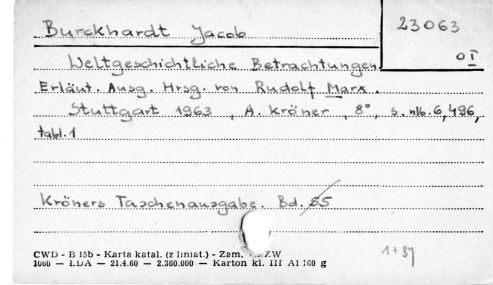 Burckhardt Jacob
23063
0I
Weltgeschichtliche Betrachtungen.
Erläut. Ausg. Hrsg. von Rudolf Marx.
Stuttgart 1963, A. Kröner, 8°, s. nlb. 6, 496,
tabl. 1
Kröners Taschenausgabe. Bd. 55
CWD - B 15b - Karta katal. (z liniat.) - Zam. /ZW
1060 — LDA — 21.4.60 — 2.360.000 — Karton kl. III A1 160 g